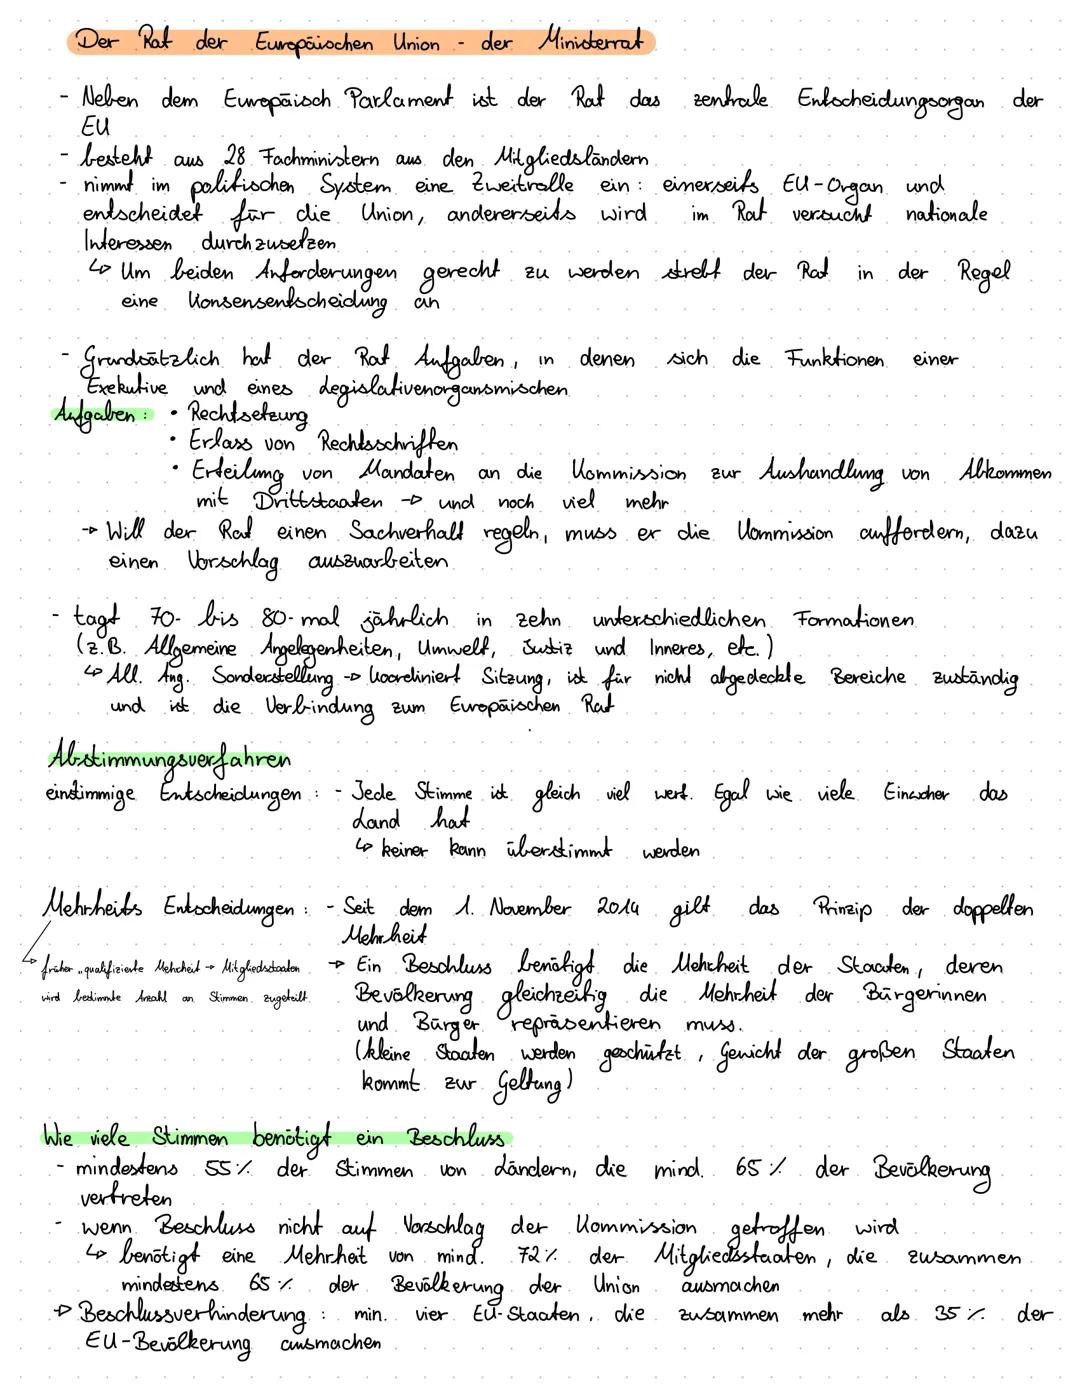 Der Rat der Europäischen Union - der Ministerrat
- Neben dem Europäisch Parlament ist der Rat das zentrale Entscheidungsorgan der
EU
- besteht aus 28 Fachministern aus den Mitgliedsländern
- nimmt im politischen System eine Zweitrolle ein : einerseits EU-Organ und
entscheidet für die Union, andererseits wird im Rat versucht nationale
Interessen durchzusetzen
↳ Um beiden Anforderungen gerecht zu werden strebt der Rat in der Regel
eine Konsensentscheidung an
- Grundsätzlich hat der Rat Aufgaben, in denen sich die Funktionen einer
Exekutive und eines Legislativenorgansmischen
Aufgaben : • Rechtsetzung
• Erlass von Rechtsschriften
• Erteilung von Mandaten an die Kommission zur Aushandlung von Abkommen
mit Drittstaaten → und noch viel mehr
→ Will der Rat einen Sachverhalt regeln, muss er die Kommission auffordern, dazu
einen Vorschlag auszuarbeiten
- tagt 70- bis 80-mal jährlich in zehn unterschiedlichen Formationen
(z.B. Allgemeine Angelegenheiten, Umwelt, Justiz und Inneres, etc.)
↳ All. Ang. Sonderstellung → koordiniert Sitzung, ist für nicht abgedeckte Bereiche zuständig
und ist die Verbindung zum Europäischen Rat
Abstimmungsverfahren
einstimmige Entscheidungen : - Jede Stimme ist gleich viel wert. Egal wie viele Einwoher das
Land hat
↳ keiner kann überstimmt werden
Mehrheits Entscheidungen : - Seit dem 1. November 2014 gilt das Prinzip der doppelten
Mehrheit
↳ früher „qualifizierte Mehrheit → Mitgliedstaaten
wird bestimmte Anzahl an Stimmen zugeteilt
→ Ein Beschluss benötigt die Mehrheit der Staaten, deren
Bevölkerung gleichzeitig die Mehrheit der Bürgerinnen
und Bürger repräsentieren muss.
(kleine Staaten werden geschützt, Gewicht der großen Staaten
kommt zur Geltung)
Wie viele Stimmen benötigt ein Beschluss
- mindestens 55% der Stimmen von Ländern, die mind. 65% der Bevölkerung
vertreten
- wenn Beschluss nicht auf Vorschlag der Kommission getroffen wird
↳ benötigt eine Mehrheit von mind. 72% der Mitgliedsstaaten, die zusammen
mindestens 65% der Bevölkerung der Union ausmachen
→ Beschlussverhinderung : min. vier EU-Staaten, die zusammen mehr als 35% der
EU-Bevölkerung ausmachen